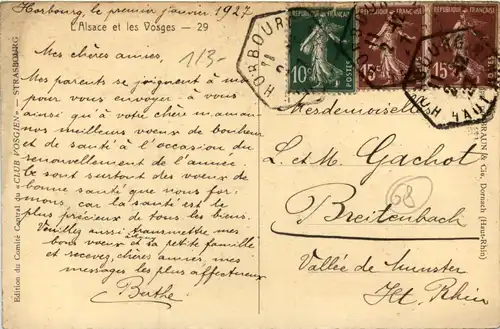 Horbourg le premier janvier 1927
L'Alsace et les Vosges - 29
113-
Mes chères amies,
Mes parents se joignent à moi
pour vous envoyer à vous
ainsi qu'à votre chère maman
nos meilleurs vœux de bonheur
et de santé à l'occasion du
renouvellement de l'année.
Ce sont surtout des vœux de
bonne santé que nous for-
mons, car la santé est le
plus précieux de tous les biens.
Veuillez aussi transmettre mes
bons vœux à et sa petite famille
et recevez, chères amies, mes
messages les plus affectueux
Berthe
Edition du Comité Central du «CLUB VOSGIEN» — STRASBOURG
RÉPUBLIQUE FRANÇAISE
10c
POSTES
RÉPUBLIQUE FRANÇAISE
15c
RÉPUBLIQUE FRANÇAISE
15c
POSTES
HORBOURG
HORBOURG
HAUT
Mesdemoiselles
L. et M. Gachot
68
Breitenbach
Vallée de Munster
Ht. Rhin
BRAUN & Cie, Dornach (Haut-Rhin)